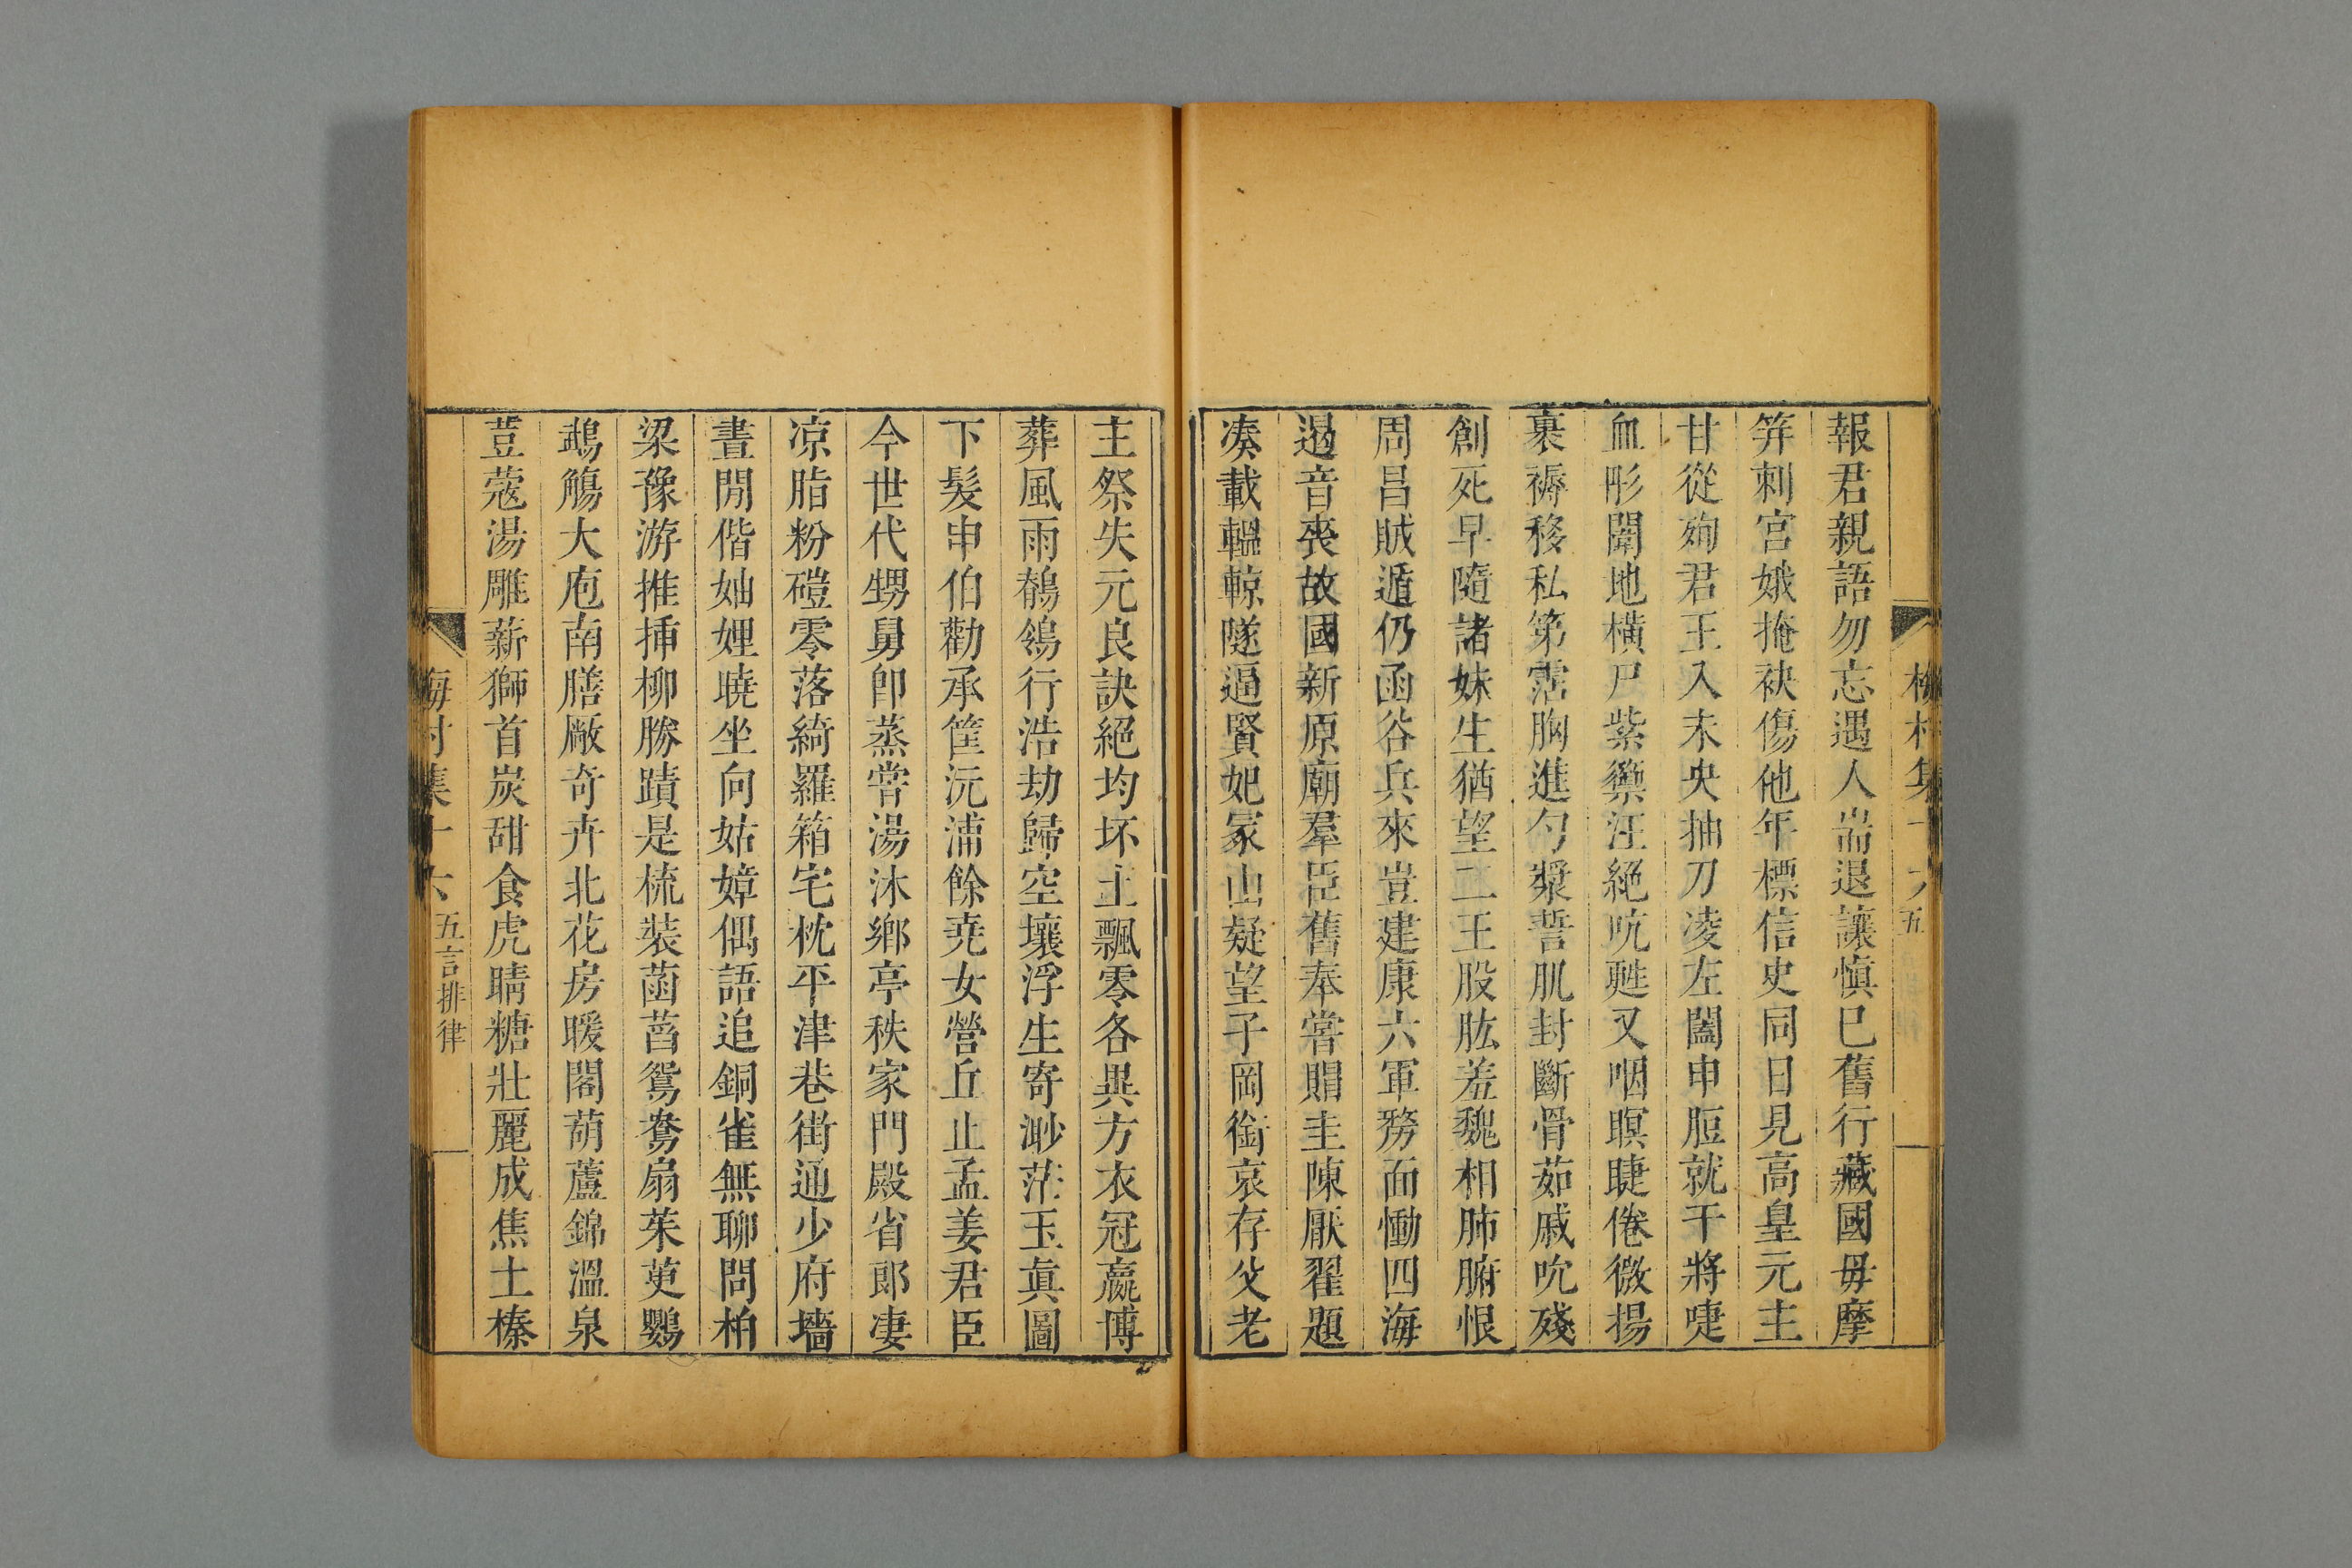 報君親語勿忘遇人耑退讓慎巳舊行藏國毋摩
笄刺宮娥掩袂傷他年標信史同日見高皇元主
甘從殉君王入未央抽刀凌左闔申脰就干將啑
血彤闈地橫尸紫籞汪絕吭甦又咽瞑睫倦微揚
裹褥移私第霑胸進勺漿誓肌封斷骨茹戚吮殘
創死早隨諸妹生猶望二王股肱羞魏相肺腑恨
周昌賊遁仍函谷兵來豈建康六軍務面慟四海
遏音喪故國新原廟羣臣舊奉嘗賵圭陳厭翟題
湊載轀輬隧逼賢妃冢山疑望子岡銜哀存父老
主祭失元良訣絕均坏土飄零各異方衣冠嬴博
葬風雨鶺鴒行浩劫歸空壤浮生寄渺茫玉眞圖
下髮申伯勸承筐沅浦餘堯女營丘止孟姜君臣
今世代甥舅卽蒸嘗湯沐鄉亭秩家門殿省郎凄
凉脂粉磑零落綺羅箱宅枕平津巷街通少府墻
晝閒偕妯娌曉坐向姑嫜偶語追銅雀無聊問柏
梁豫游推揷柳勝蹟是梳裝菡萏鴛鴦扇茱萸鸚
鵡觴大庖南膳厰奇卉北花房暖閣葫蘆錦溫泉
荳蔻湯雕薪獅首炭甜食虎睛糖壯麗成焦土榛
梅村集十六 五言排律